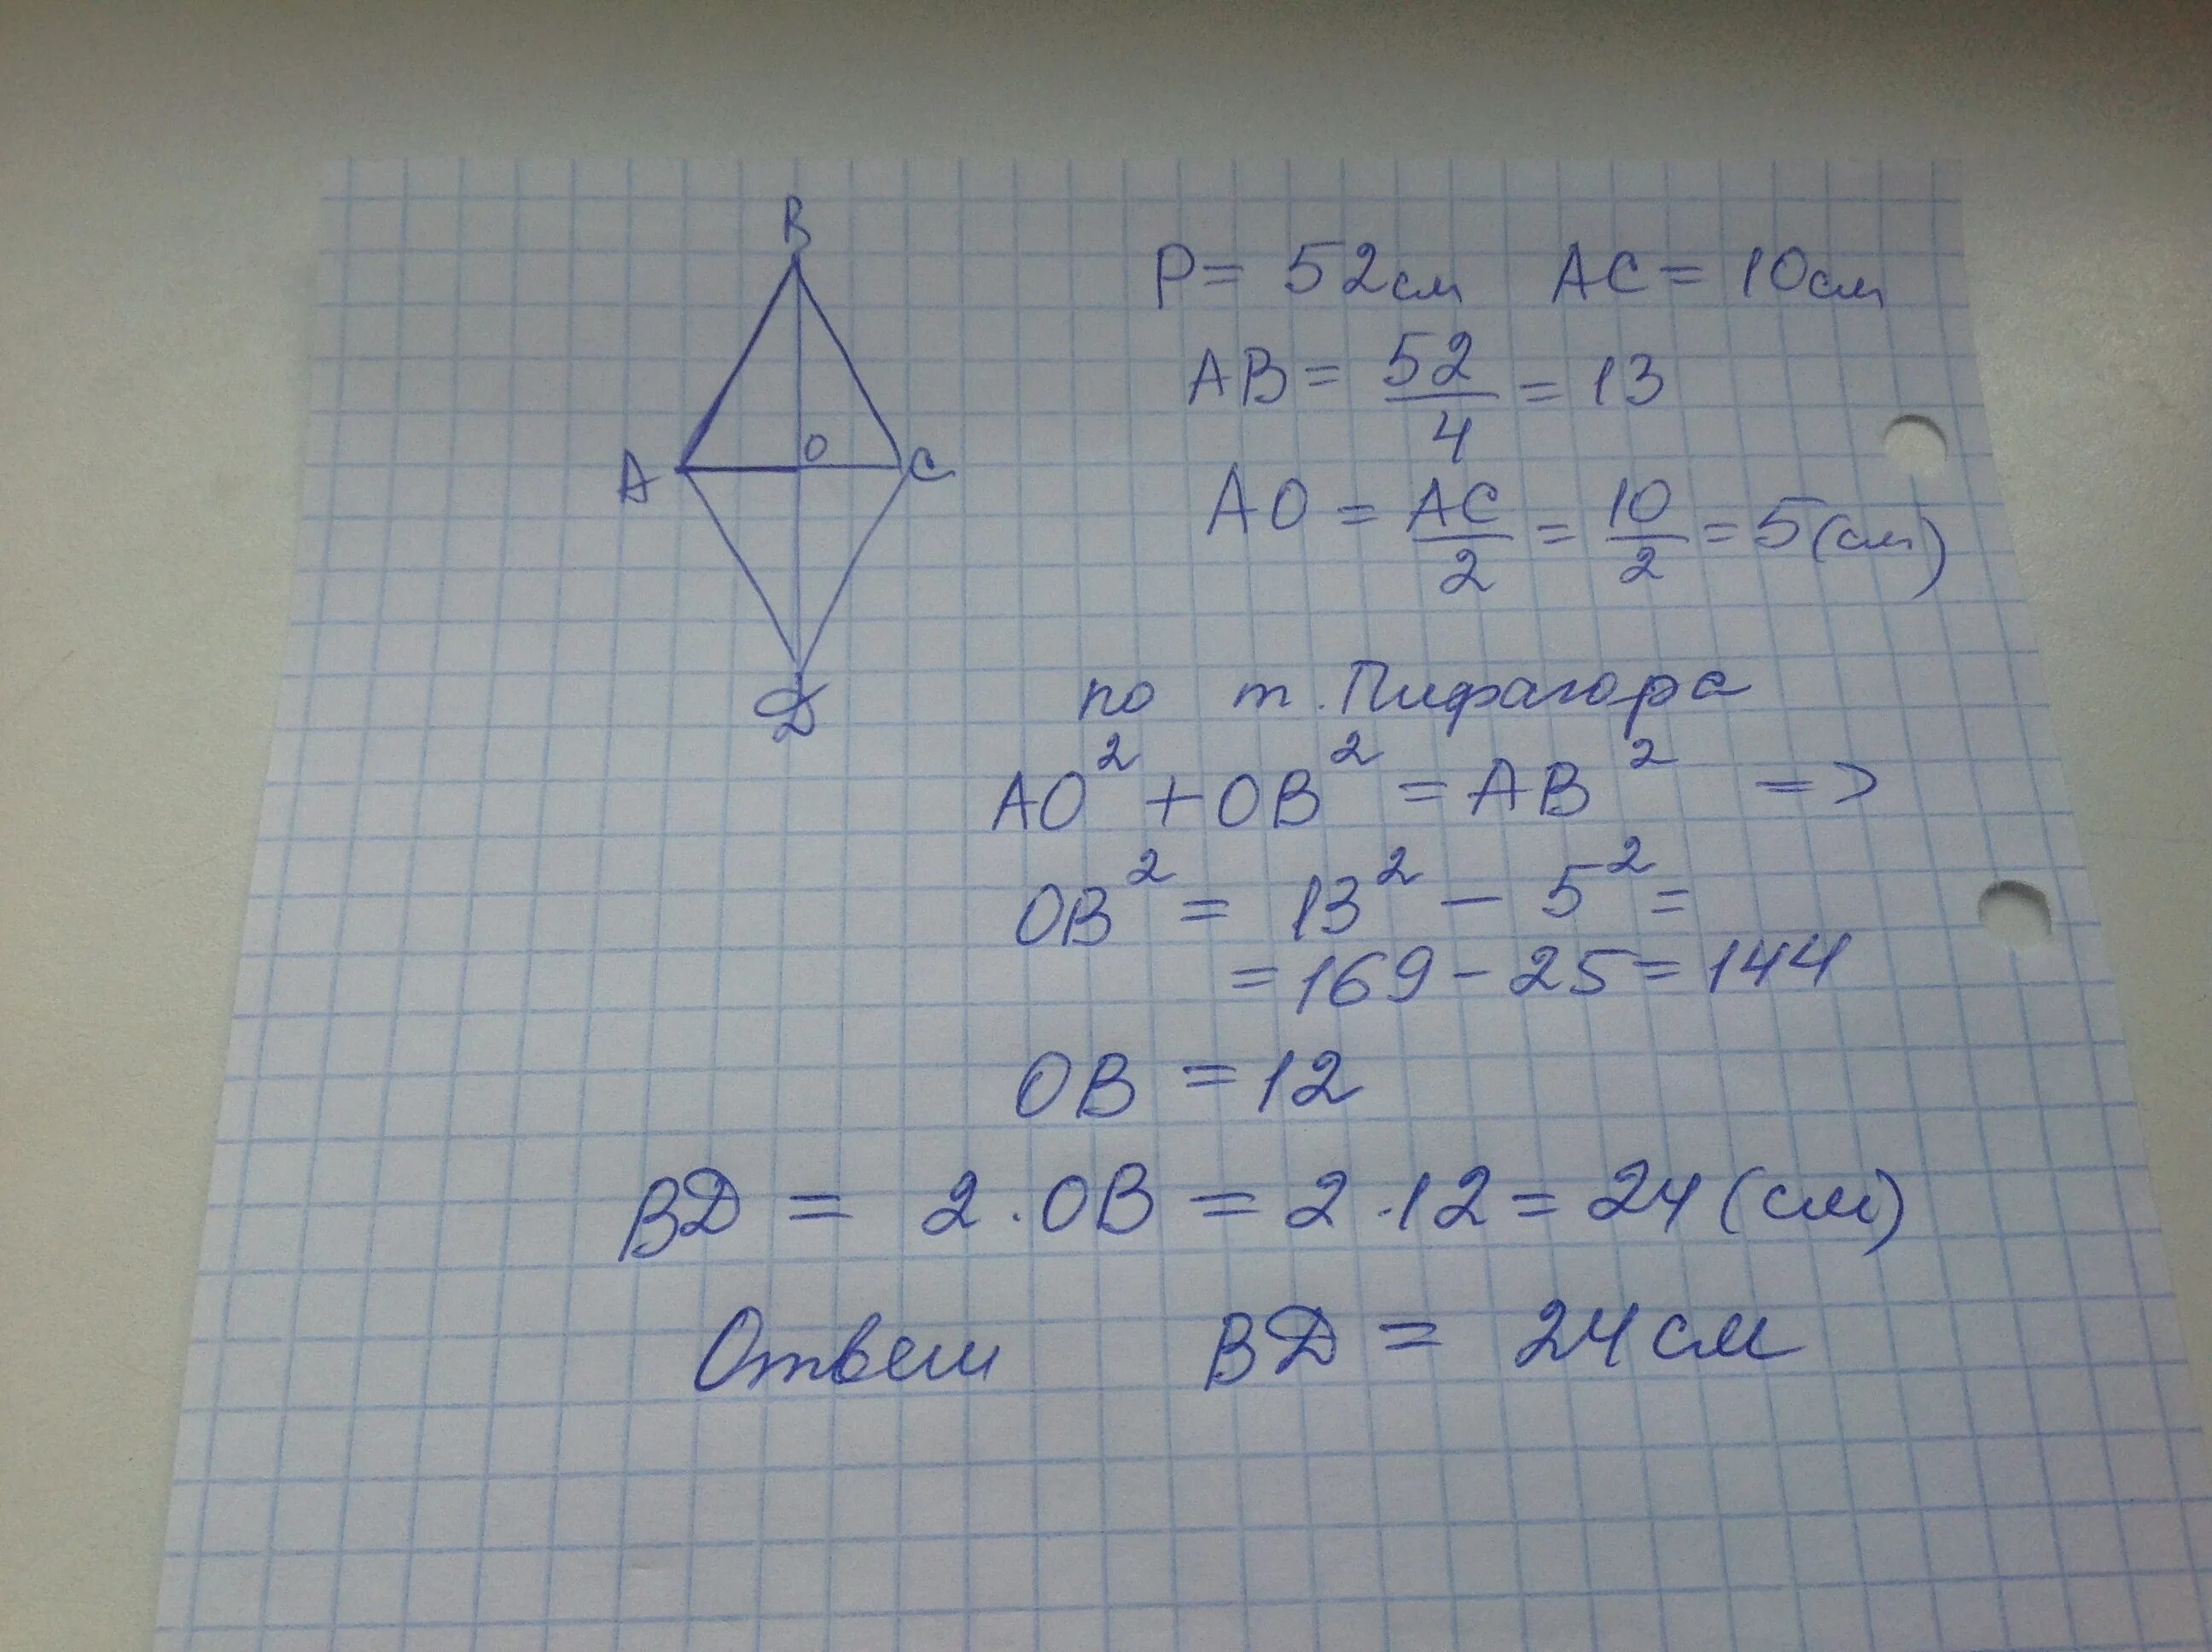 B
A
O
C
D
P = 52см AC = 10см
AB = 52/4 = 13
AO = AC/2 = 10/2 = 5(см)
по т. Пифагора
AO² + OB² = AB² =>
OB² = 13² - 5² =
= 169 - 25 = 144
OB = 12
BD = 2 · OB = 2 · 12 = 24 (см)
Ответ BD = 24 см